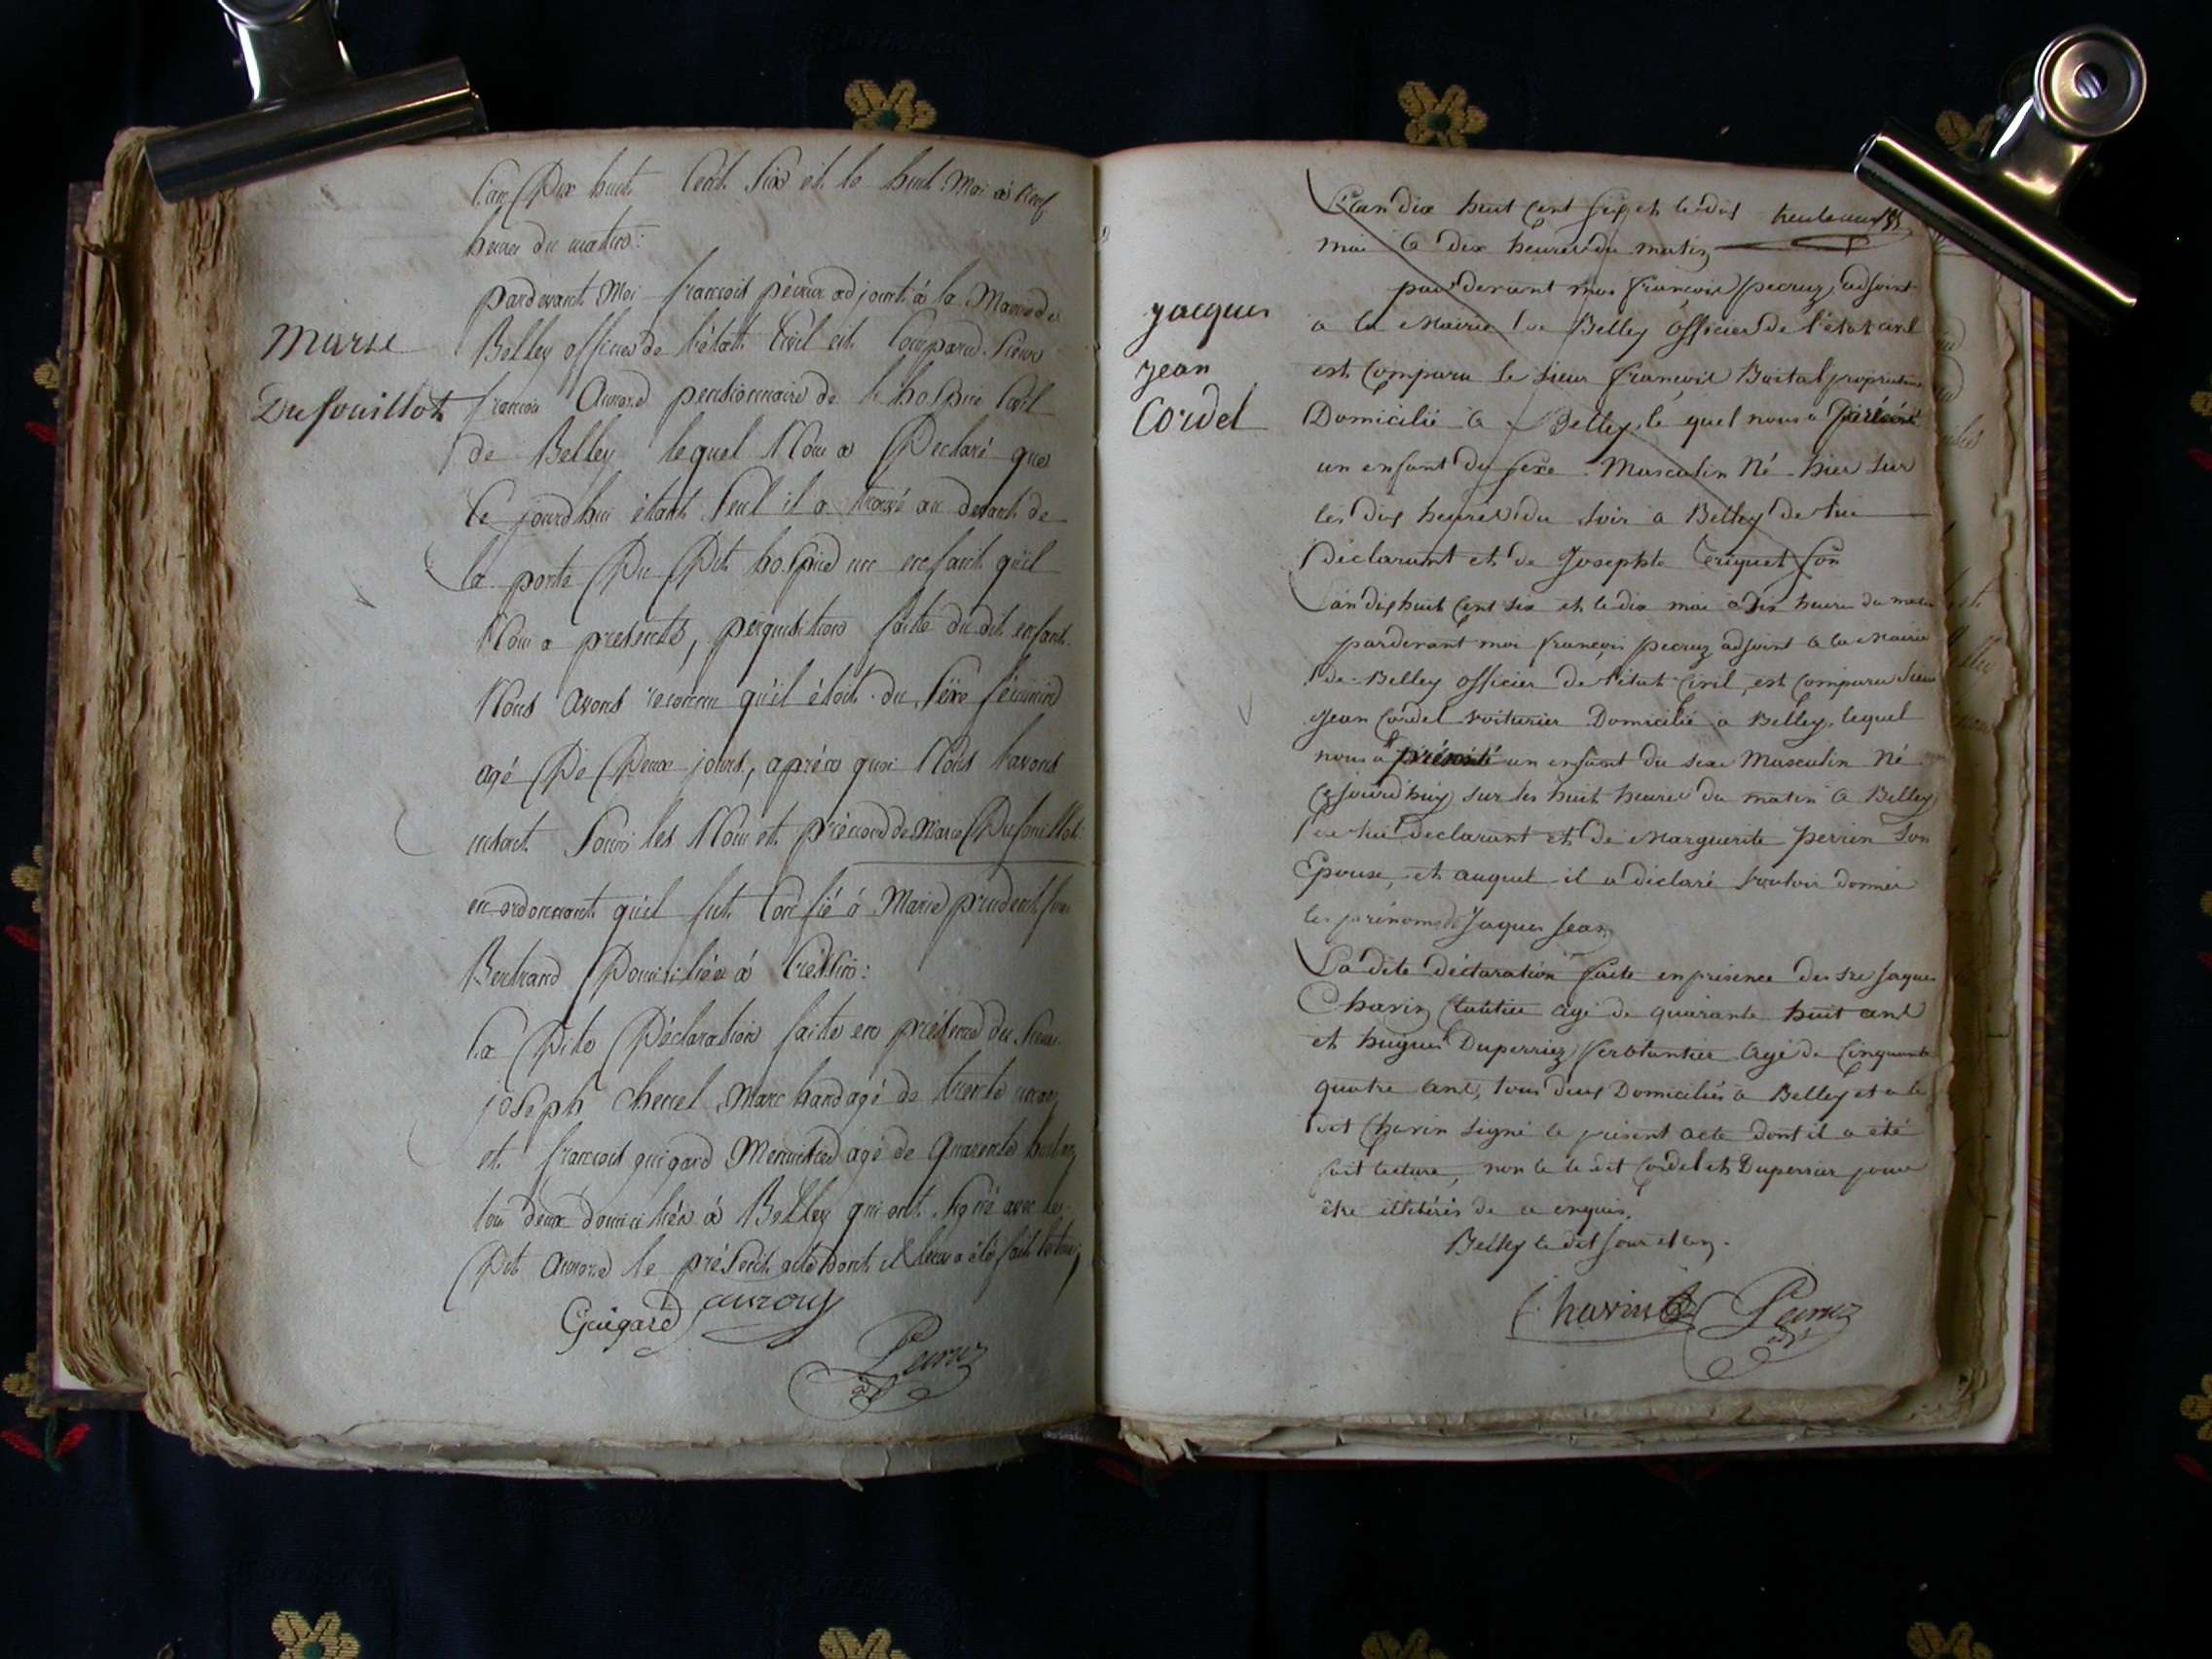 L'an Dix huit Cent Six et le huit Mai à Neuf
heures du matin:
pardevant Moi françois pécruz adjoint à la Mairie de
Belley officier de l'état Civil est Comparu Sieur
françois Auroud pensionnaire de l'hospice Civil
de Belley lequel Nous a Déclaré que
Ce jourdhui étant Seul il a trouvé au devant de
la porte Du Dit hospice un enfant qu'il
Nous a présenté, perquisition faite du dit enfant
Nous avons reconnu qu'il étoit du Sexe féminin
agé De Deux jours, après quoi Nous l'avons
inscrit Sous les Nom et prénom de Marie Dufouillot
en ordonnant qu'il fut Confié à Marie prudent
Bertrand Domiciliée à
La Dite Déclaration faite en présence du Sieur
joseph Chenel Marchand agé de trente
et françois guigard Menuisier agé de quarente huit ans
tous deux domiciliés à Belley qui ont Signé avec le
Dit Auroud le présent acte dont il leur a été fait lecture
Marie
Dufouillot
Guigard auroux
Pecruz
adjt
L'an dix huit cent six et le dix
mai à dix heures du matin
pardevant moi françois pecruz adjoint
a la Mairie de Belley officier de l'état civil
est comparu le sieur françois Boital propriétaire
Domicilié à Belley le quel nous a présenté
un enfant du sexe Masculin Né hier sur
les dix heures du soir a Belley de lui
déclarant et de Josephte son
L'an dix huit cent six et le dix mai à dix heures du matin
pardevant moi françois pecruz adjoint a la Mairie
de Belley officier de l'état civil, est comparu Sieur
Jean Cordel voiturier Domicilié a Belley, lequel
nous a présenté un enfant du sexe Masculin Né
cejourd'huy sur les huit heures du matin a Belley
de lui déclarant et de Marguerite perrin son
Epouse, et auquel il a déclaré vouloir donner
les prénoms de Jaques Jean
La dite déclaration faite en présence des Srs Jaques
Chavin agé de quarante huit ans
et hugues Duperriez ferblantier agé de cinquante
quatre ans, tous deux Domiciliés a Belley et a le
dit Chavin signé le présent acte dont il a été
fait lecture, non le le dit Cordel et Duperrier pour
être illitérés de ce enquis.
Belley le dit jour et an.
jacques
jean
Cordel
Chavin Pecruz
adjt